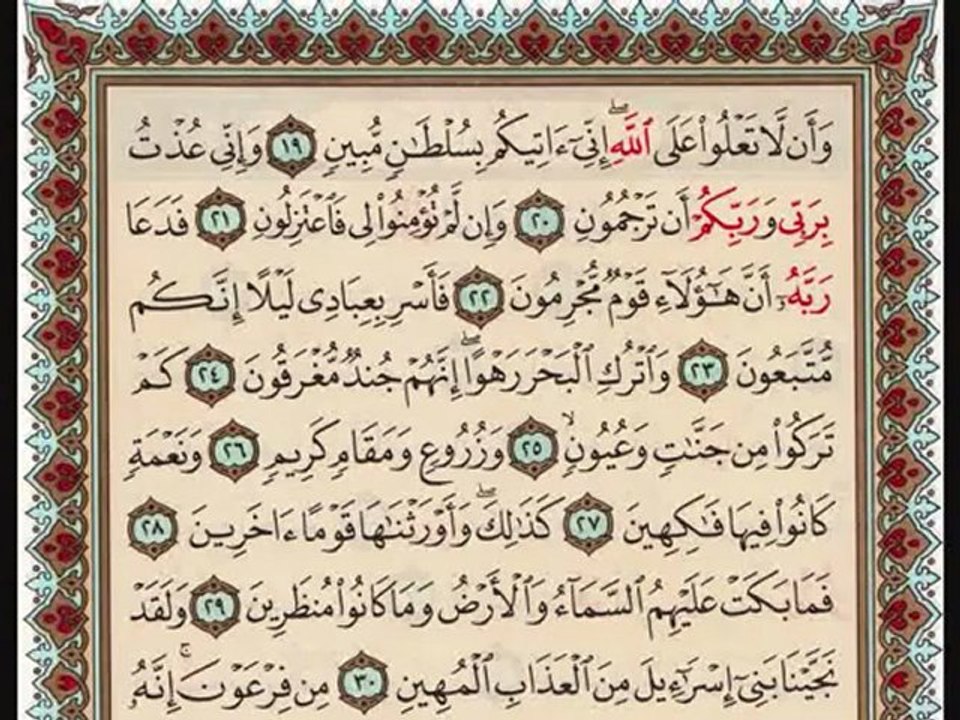 وَأَن لَّا تَعْلُوا۟ عَلَى ٱللَّهِ ۖ إِنِّىٓ ءَاتِيكُم بِسُلْطَـٰنٍ مُّبِينٍ ١٩ وَإِنِّى عُذْتُ
بِرَبِّى وَرَبِّكُمْ أَن تَرْجُمُونِ ٢٠ وَإِن لَّمْ تُؤْمِنُوا۟ لِى فَٱعْتَزِلُونِ ٢١ فَدَعَا
رَبَّهُۥٓ أَنَّ هَـٰٓؤُلَآءِ قَوْمٌ مُّجْرِمُونَ ٢٢ فَأَسْرِ بِعِبَادِى لَيْلًا إِنَّكُم
مُّتَّبَعُونَ ٢٣ وَٱتْرُكِ ٱلْبَحْرَ رَهْوًا ۖ إِنَّهُمْ جُندٌ مُّغْرَقُونَ ٢٤ كَمْ
تَرَكُوا۟ مِن جَنَّـٰتٍ وَعُيُونٍ ۙ ٢٥ وَزُرُوعٍ وَمَقَامٍ كَرِيمٍ ٢٦ وَنَعْمَةٍ
كَانُوا۟ فِيهَا فَـٰكِهِينَ ٢٧ كَذَٰلِكَ ۖ وَأَوْرَثْنَـٰهَا قَوْمًا ءَاخَرِينَ ٢٨
فَمَا بَكَتْ عَلَيْهِمُ ٱلسَّمَآءُ وَٱلْأَرْضُ وَمَا كَانُوا۟ مُنظَرِينَ ٢٩ وَلَقَدْ
نَجَّيْنَا بَنِىٓ إِسْرَٰٓءِيلَ مِنَ ٱلْعَذَابِ ٱلْمُهِينِ ٣٠ مِن فِرْعَوْنَ ۚ إِنَّهُۥ